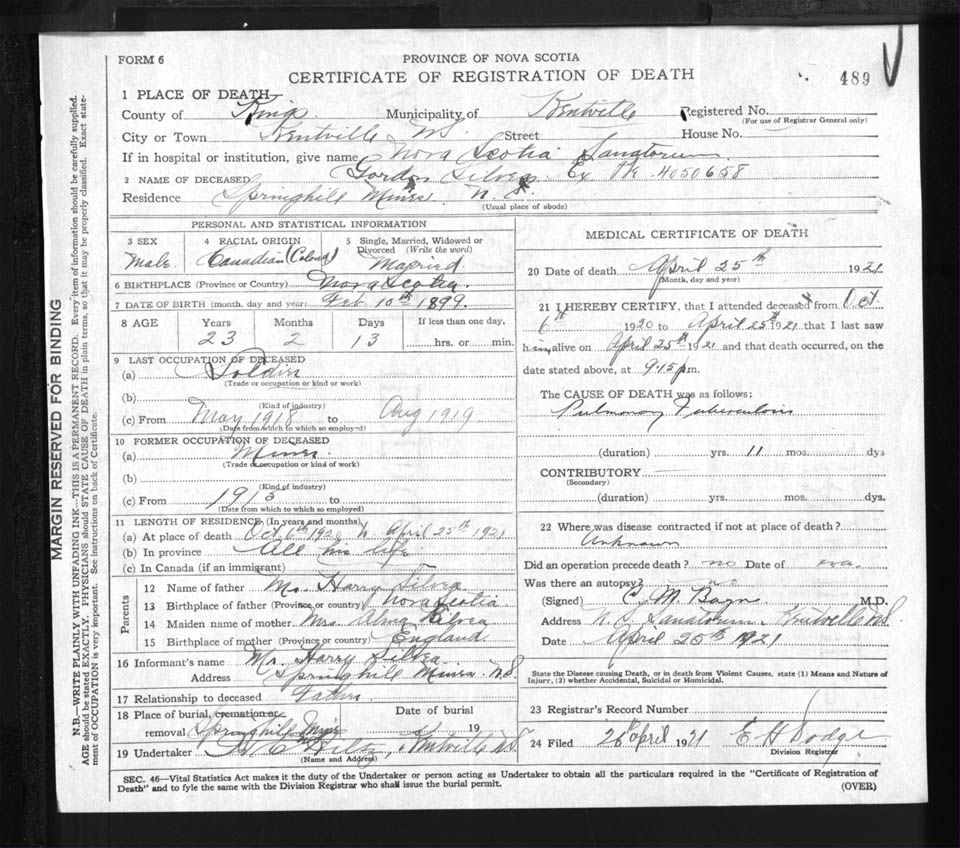 FORM 6
PROVINCE OF NOVA SCOTIA
CERTIFICATE OF REGISTRATION OF DEATH
489
1 PLACE OF DEATH
County of Kings Municipality of Kentville Registered No.
(For use of Registrar General only)
City or Town Kentville N.S. Street House No.
If in hospital or institution, give name Nova Scotia Sanatorium
2 NAME OF DECEASED Gordon Silvea Ex Pte 4050658
Residence Springhill Mines. N.S.
(Usual place of abode)
PERSONAL AND STATISTICAL INFORMATION
3 SEX
Male.
4 RACIAL ORIGIN
Canadian (Colored)
5 Single, Married, Widowed or Divorced (Write the word)
Married.
6 BIRTHPLACE (Province or Country) Nova Scotia.
7 DATE OF BIRTH (month, day and year) Feb. 10th 1899.
8 AGE
Years Months Days If less than one day,
23 2 13 hrs. or min.
9 LAST OCCUPATION OF DECEASED
(a) Soldier
(Trade or occupation or kind or work)
(b)
(Kind of industry)
(c) From May 1918 to Aug 1919
(Date from which to which so employed)
10 FORMER OCCUPATION OF DECEASED
(a) Miner
(Trade or occupation or kind or work)
(b)
(Kind of industry)
(c) From 1915 to
(Date from which to which so employed)
11 LENGTH OF RESIDENCE (In years and months)
(a) At place of death Oct 6th 1920 to April 25th 1921
(b) In province All his life.
(c) In Canada (if an immigrant)
Parents
12 Name of father Mr. Harry Silvea
13 Birthplace of father (Province or country) Nova Scotia
14 Maiden name of mother Mrs. Alma Silvea
15 Birthplace of mother (Province or country) England
16 Informant's name Mr. Harry Silvea
Address Springhill Mines N.S.
17 Relationship to deceased Father
18 Place of burial, cremation or Date of burial
removal Springhill Mines 19
19 Undertaker Kentville N.S.
(Name and Address)
MEDICAL CERTIFICATE OF DEATH
20 Date of death April 25th 1921
(Month, day and year)
21 I HEREBY CERTIFY, that I attended deceased from Oct
6th 1920 to April 25th 1921 that I last saw
him alive on April 25th 1921 and that death occurred, on
date stated above, at 9.15 p.m.
The CAUSE OF DEATH was as follows:
Pulmonary Tuberculosis
(duration) yrs. 11 mos. dys
CONTRIBUTORY
(Secondary)
(duration) yrs. mos. dys.
22 Where was disease contracted if not at place of death?
Unknown
Did an operation precede death? no Date of
Was there an autopsy? no
(Signed) C. M. M.D.
Address N.S. Sanatorium, Kentville N.S.
Date April 25th 1921
State the Disease causing Death, or in death from Violent Causes, state (1) Means and Nature of Injury, (2) whether Accidental, Suicidal or Homicidal.
23 Registrar's Record Number
24 Filed 26 April 1921 E H Dodge
Division Registrar
SEC. 46—Vital Statistics Act makes it the duty of the Undertaker or person acting as Undertaker to obtain all the particulars required in the "Certificate of Registration of
Death" and to fyle the same with the Division Registrar who shall issue the burial permit.
(OVER)
MARGIN RESERVED FOR BINDING
N.B.—WRITE PLAINLY WITH UNFADING INK—THIS IS A PERMANENT RECORD. Every item of information should be carefully supplied.
AGE should be stated EXACTLY. PHYSICIANS should STATE CAUSE OF DEATH in plain terms, so that it may be properly classified. Exact statement of OCCUPATION is very important. See instructions on back of Certificate.